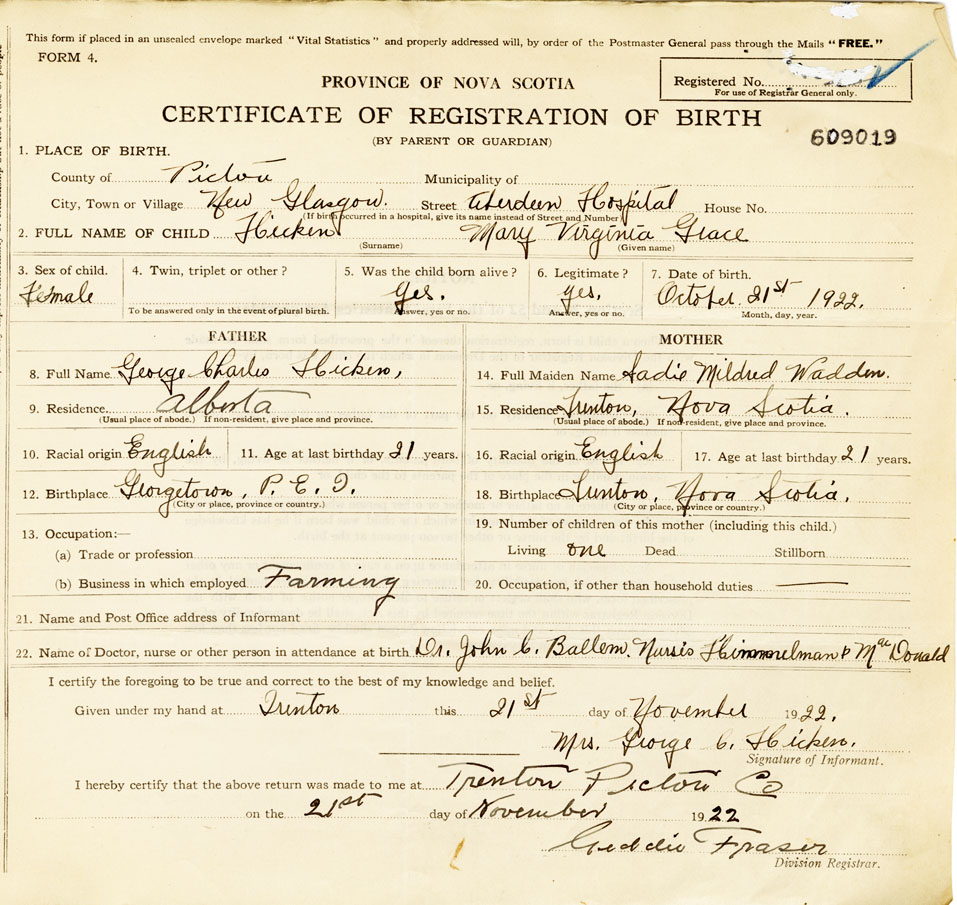 This form if placed in an unsealed envelope marked "Vital Statistics" and properly addressed will, by order of the Postmaster General pass through the Mails "FREE."
FORM 4.
PROVINCE OF NOVA SCOTIA
Registered No.
For use of Registrar General only.
CERTIFICATE OF REGISTRATION OF BIRTH
(BY PARENT OR GUARDIAN)
609019
1. PLACE OF BIRTH.
County of Pictou Municipality of
City, Town or Village New Glasgow. Street Aberdeen Hospital House No.
(If birth occurred in a hospital, give its name instead of Street and Number)
2. FULL NAME OF CHILD Hicken Mary Virginia Grace
(Surname) (Given name)
3. Sex of child. 4. Twin, triplet or other? 5. Was the child born alive? 6. Legitimate? 7. Date of birth.
Female Yes. Yes. October 21st 1922.
To be answered only in the event of plural birth. Answer, yes or no. Answer, yes or no. Month, day, year.
FATHER MOTHER
8. Full Name George Charles Hicken, 14. Full Maiden Name Sadie Mildred Wadden.
9. Residence Alberta 15. Residence Trenton, Nova Scotia.
(Usual place of abode.) If non-resident, give place and province. (Usual place of abode.) If non-resident, give place and province.
10. Racial origin English 11. Age at last birthday 21 years. 16. Racial origin English 17. Age at last birthday 21 years.
12. Birthplace Georgetown, P. E. I. 18. Birthplace Trenton, Nova Scotia.
(City or place, province or country.) (City or place, province or country.)
13. Occupation:— 19. Number of children of this mother (including this child.)
(a) Trade or profession Living one Dead Stillborn
(b) Business in which employed Farming 20. Occupation, if other than household duties
21. Name and Post Office address of Informant
22. Name of Doctor, nurse or other person in attendance at birth Dr. John C. Ballem. Nurses Himmelman & MacDonald
I certify the foregoing to be true and correct to the best of my knowledge and belief.
Given under my hand at Trenton this 21st day of November 1922.
Mrs. George C. Hicken.
Signature of Informant.
I hereby certify that the above return was made to me at Trenton Pictou Co
on the 21st day of November 1922
Geddie Fraser
Division Registrar.